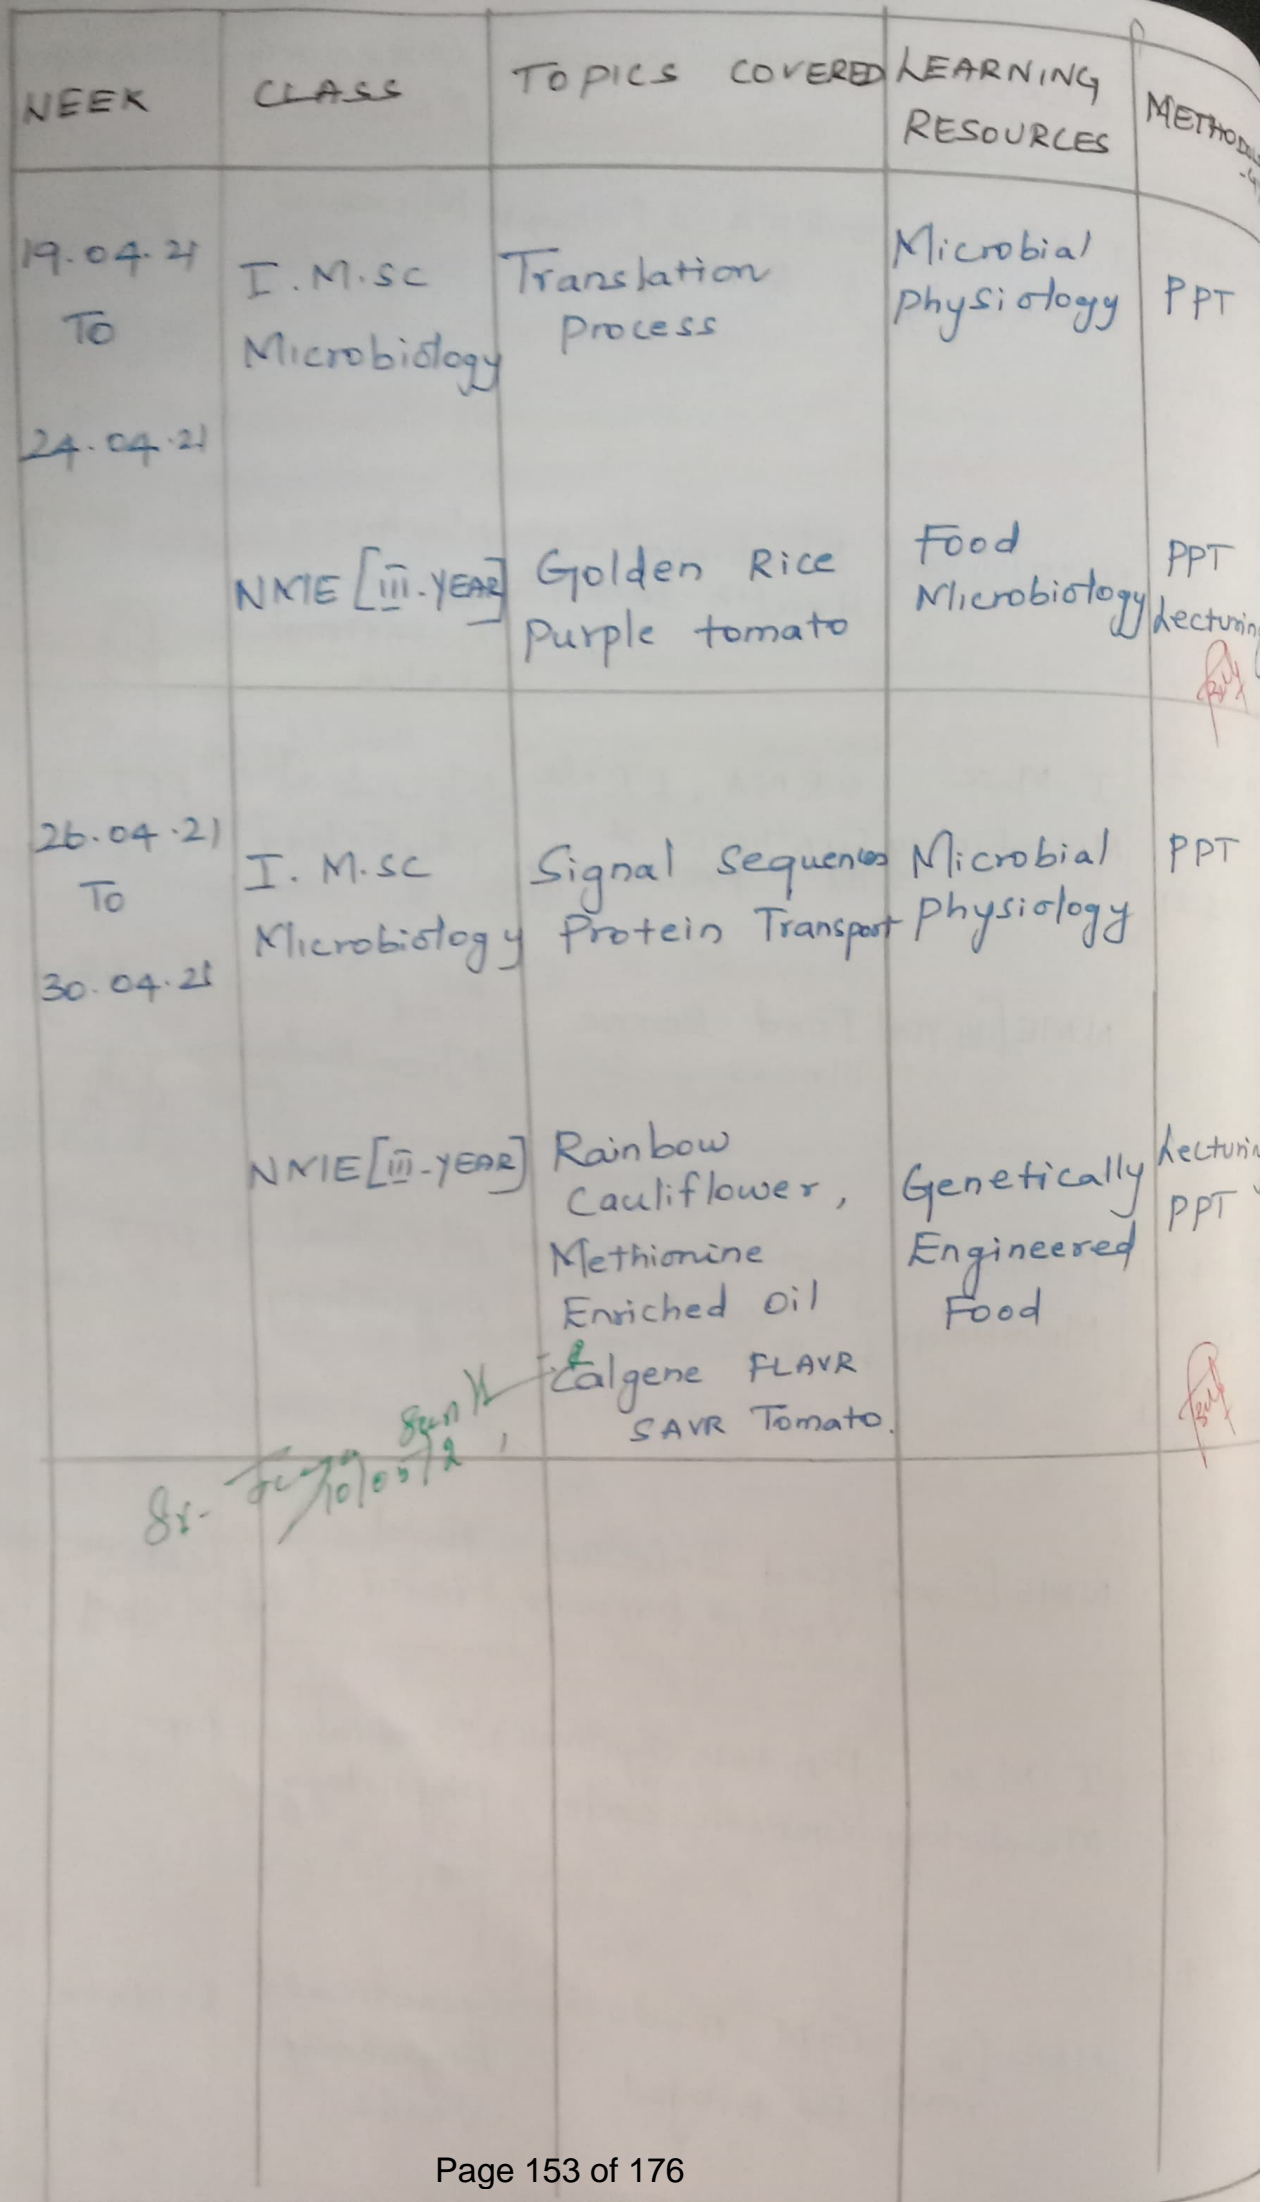 WEEK CLASS TOPICS COVERED LEARNING RESOURCES
19.04.21 To 24.04.21
I. M.SC Microbiology
Translation Process
Microbial Physiology
PPT
NME [III-YEAR]
Golden Rice
Purple tomato
Food Microbiology
PPT
26.04.21 To 30.04.21
I. M.SC Microbiology
Signal Sequences
Protein Transport
Microbial Physiology
PPT
NME [III-YEAR]
Rainbow
Cauliflower,
Methionine
Enriched Oil
Calgene FLAVR
SAVR Tomato.
Genetically
Engineered
Food
PPT
Page 153 of 176